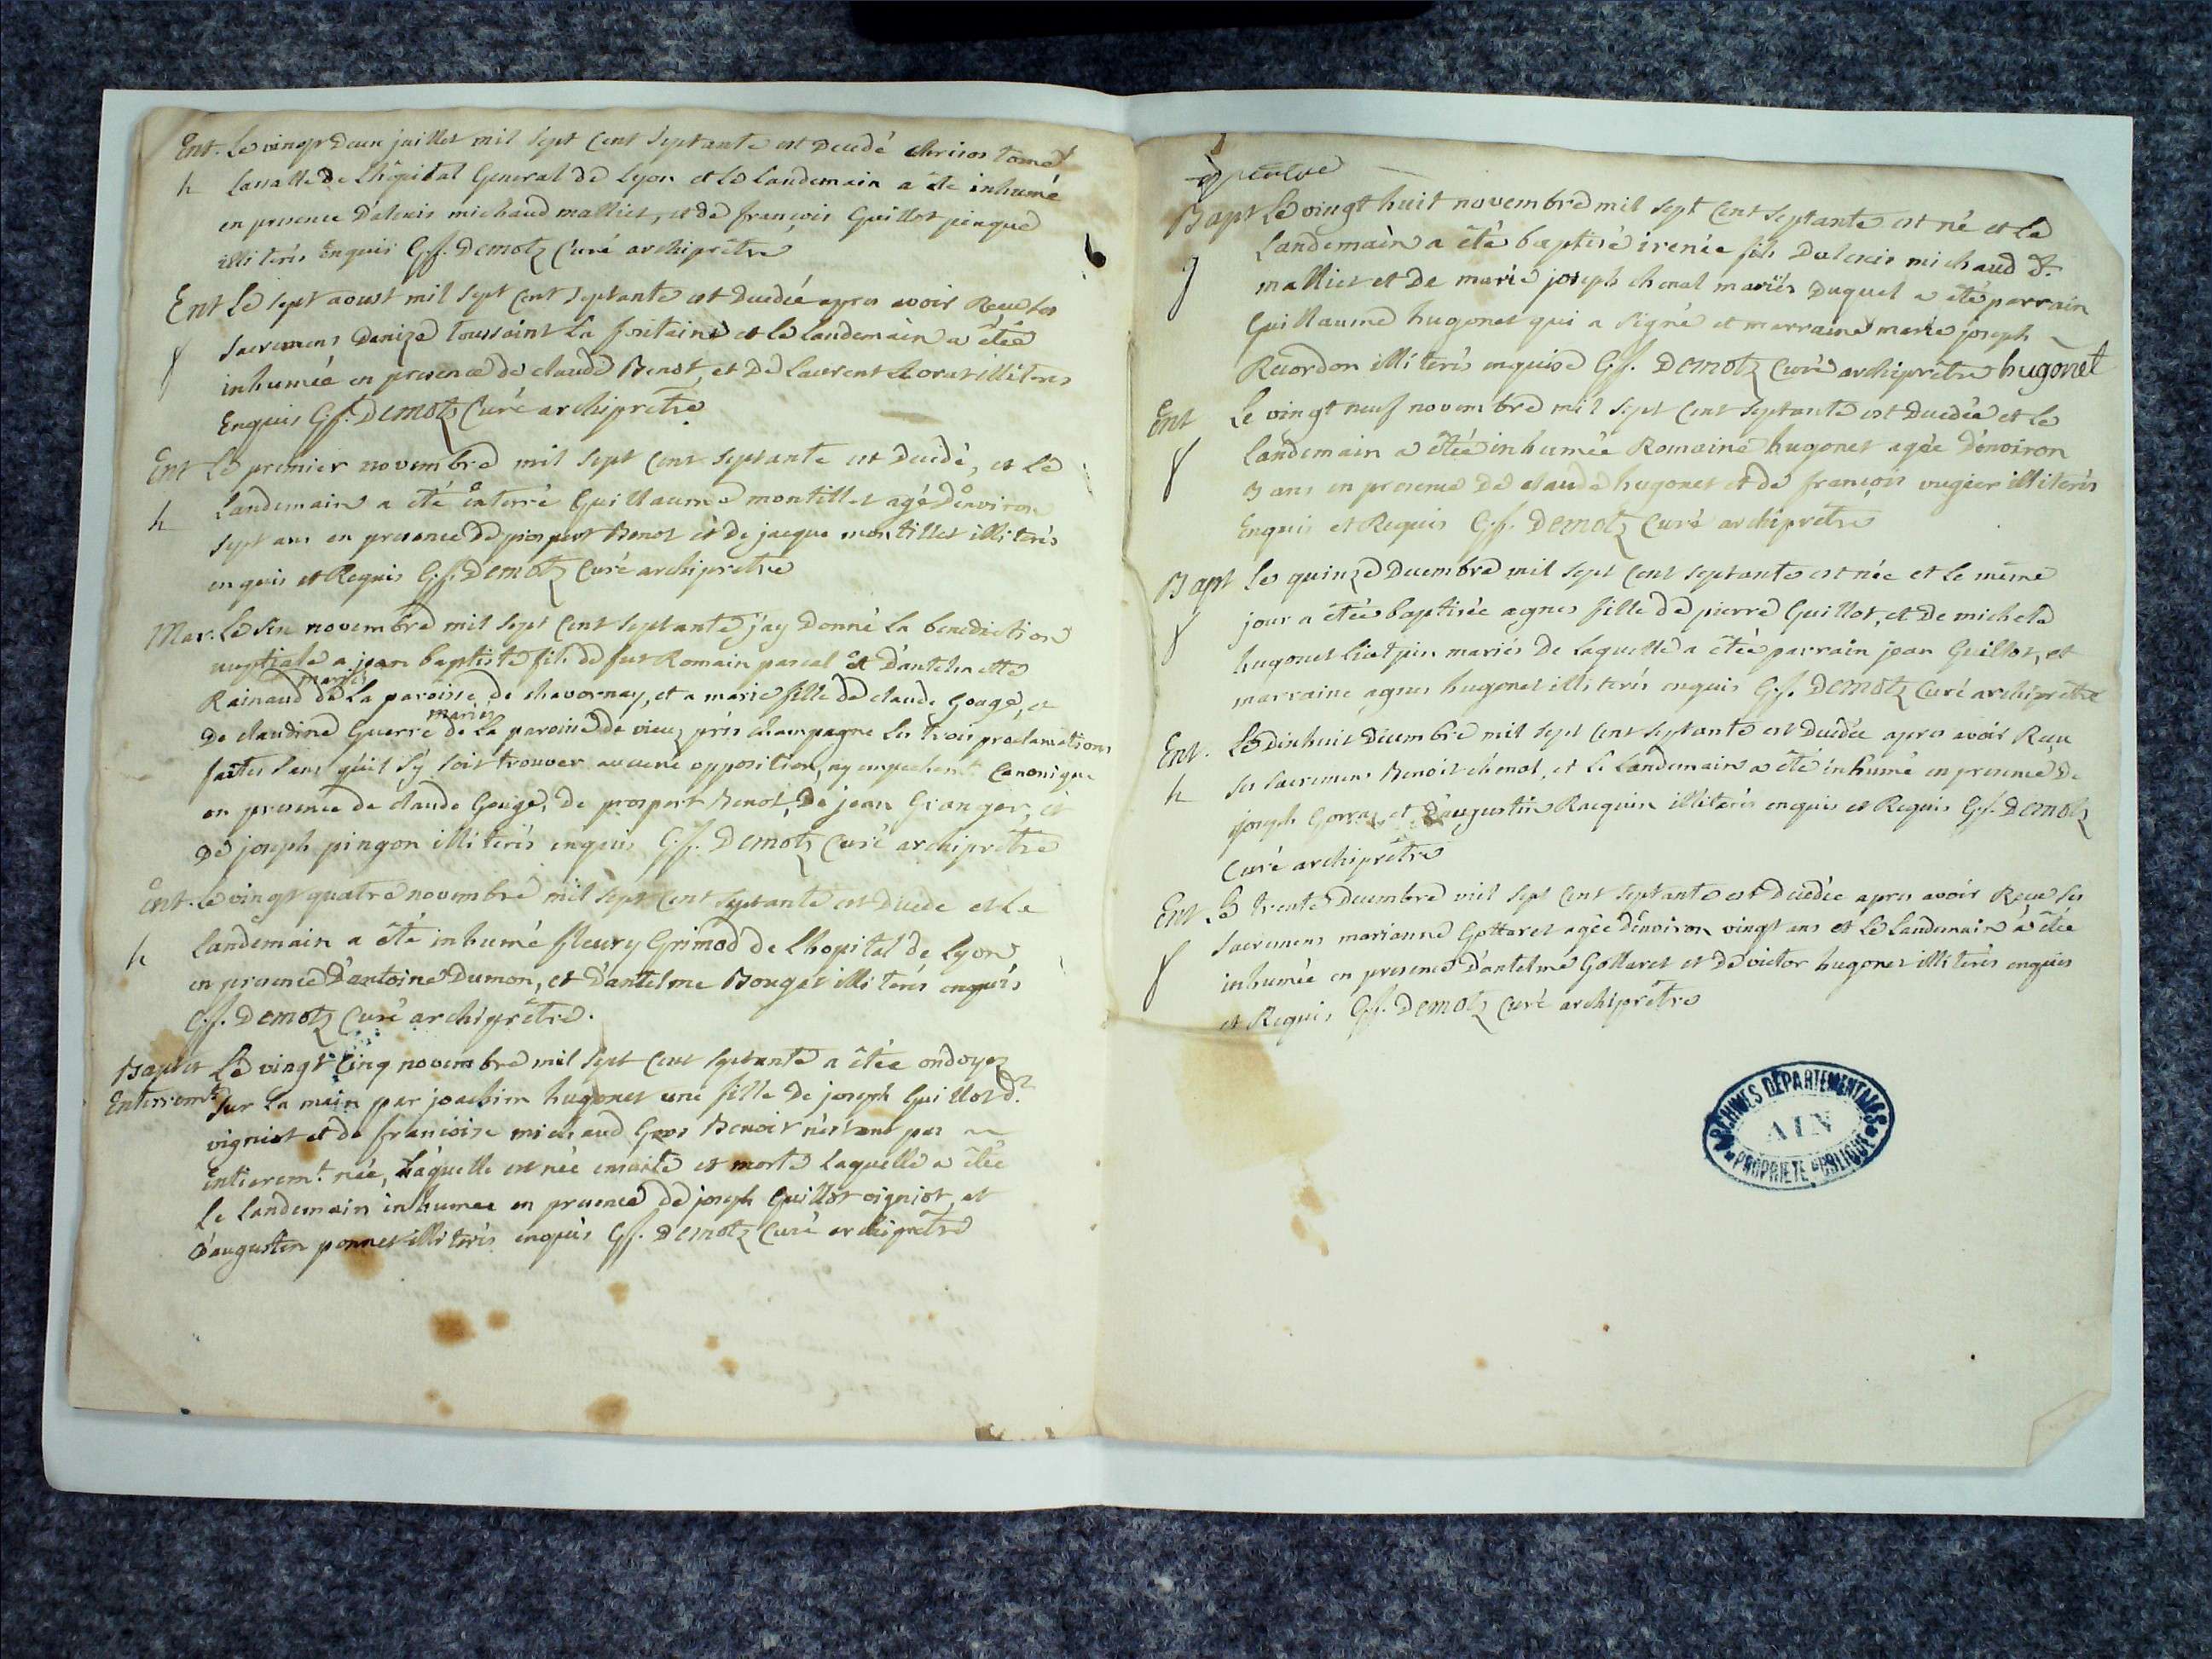 Ent. Le vingt deux juillet mil sept cent septante est decedé chrisostome
h lassalle de Lhôpital General de Lyon et le landemain a été inhumé
en presence d'alexis michaud malliet, et de françois Guillot pinque
illiterés enquis G.f. Demotz Curé archiprêtre
Ent Le sept aoust mil sept cent septante est decedée apres avoir Recu les
f sacremens Denize toussaint La fontaine et le landemain a étée
inhumée en presence de claude Benot, et de Laurent illiterés
Enquis G.f. Demotz Curé archiprêtre
Ent Le premier novembre mil sept cent septante est decedé, et le
h landemain a été enterré Guillaume montillet agé d'environ
sept ans en presence de prospert Benot et de jacque montillet illiterés
enquis et Requis G.f. Demotz Curé archiprêtre
Mar. Le six novembre mil sept cent septante j'ay donné la benediction
nuptiale a jean baptiste fils de fut Romain pascal et d'antelmette
Rainaud mariés de La paroisse de chavornay, et a marie fille de claude Gouge, et
De claudine Guerre mariés de La paroisse de vieux près champagne les trois proclamations
faites sans qu'il s'y soit trouver aucune opposition, ny empechem.t Canonique
en presence de claude Gouge, de prospert Benot, de jean Granger, et
de joseph pingon illiterés enquis G.f. Demotz Curé archiprêtre
Ent. Le vingt quatre novembre mil sept cent septante est decede et Le
h landemain a été inhumé fleury Grimod de Lhopital de Lyon
en presence d'antoine Dumon, et d'antelme Bouget illiterés enquis
G.f. Demotz Curé archiprêtre.
Bapt et Le vingt cinq novembre mil sept cent septante a étée ondoyez
Enterrem.t sur La main par joachim hugonet une fille de joseph Guillot d.t
vigniot et de francoise michaud Gros Benoit n'estant pas
entierem.t née, Laquelle est née ensuite et morte laquelle a étée
Le landemain inhumee en presence de joseph Guillot vigniot, et
d'augustin ponnet illiterés enquis G.f. Demotz Curé archiprêtre
Bapt Le vingt huit novembre mil sept cent septante est né et le
g Landemain a été baptisé irenée fils d'alexis michaud d.t
malliet et De marie joseph chenal mariés Duquel a été parrain
Guillaume hugonet qui a signé et marraine marie joseph
Reuordon illiterés enquise G.f. Demotz Curé archiprêtre hugonet
Ent Le vingt neuf novembre mil sept cent septante est decedée et le
f landemain a étée inhumée Romaine hugonet agée d'environ
3 ans en presence de claude hugonet et de françois vugier illiterés
Enquis et Requis G.f. Demotz Curé archiprêtre
Bapt Le quinze Decembre mil sept cent septante est née et le même
f jour a étée baptisée agnes fille de pierre Guillot, et De michele
hugonet mariés De laquelle a étée parrain jean Guillot, et
marraine agnes hugonet illiterés enquis G.f. Demotz Curé archiprêtre
Ent. Le dixhuit decembre mil sept cent septante est decedée apres avoir Recu
h ses sacremens Benoit chenot, et le landemain a été inhumé en presence de
joseph Gorraz et d'augustin Racquin illiterés enquis et Requis G.f. Demotz
Curé archiprêtre
Ent. Le trente Decembre mil sept cent septante est decedée apres avoir Recu ses
f sacremens marianne Gottaret agée d'environ vingt ans et le landemain a étée
inhumée en presence d'antelme Gottaret et de victor hugonet illiterés enquis
et Requis G.f. Demotz Curé archiprêtre
ARCHIVES DÉPARTEMENTALES
AIN
PROPRIETE PUBLIQUE